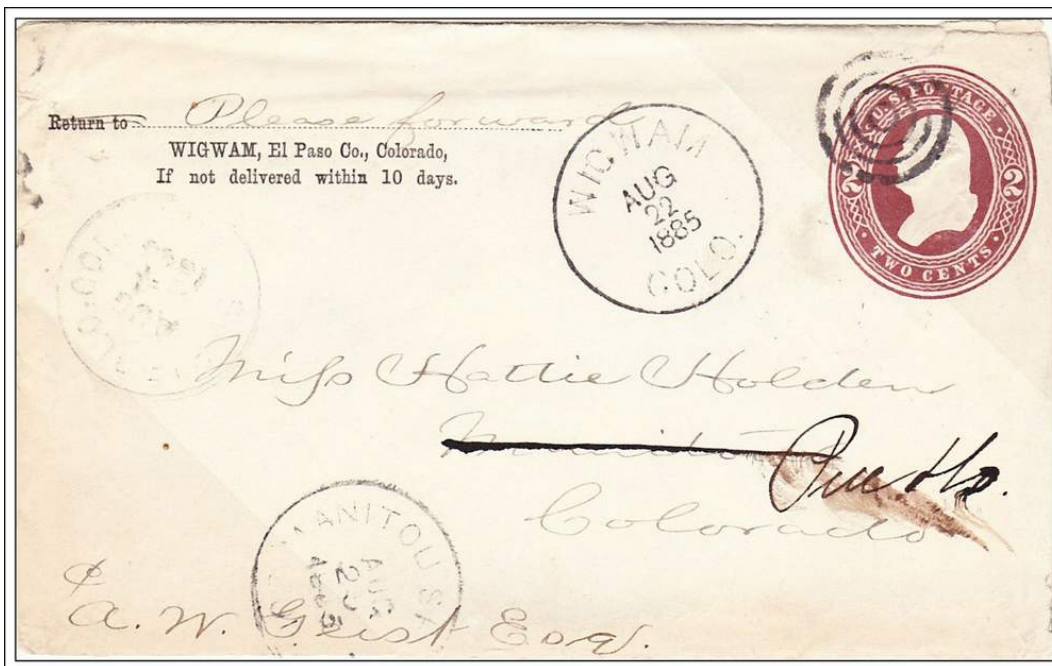 Return to Please forward
WIGWAM, El Paso Co., Colorado,
If not delivered within 10 days.
WIGWAM
AUG
22
1885
COLO.
U.S. POSTAGE
2 2
TWO CENTS
Miss Hattie Holden
Manitou
Pueblo.
Colorado
MANITOU
AUG
A. W. Geist Esq.